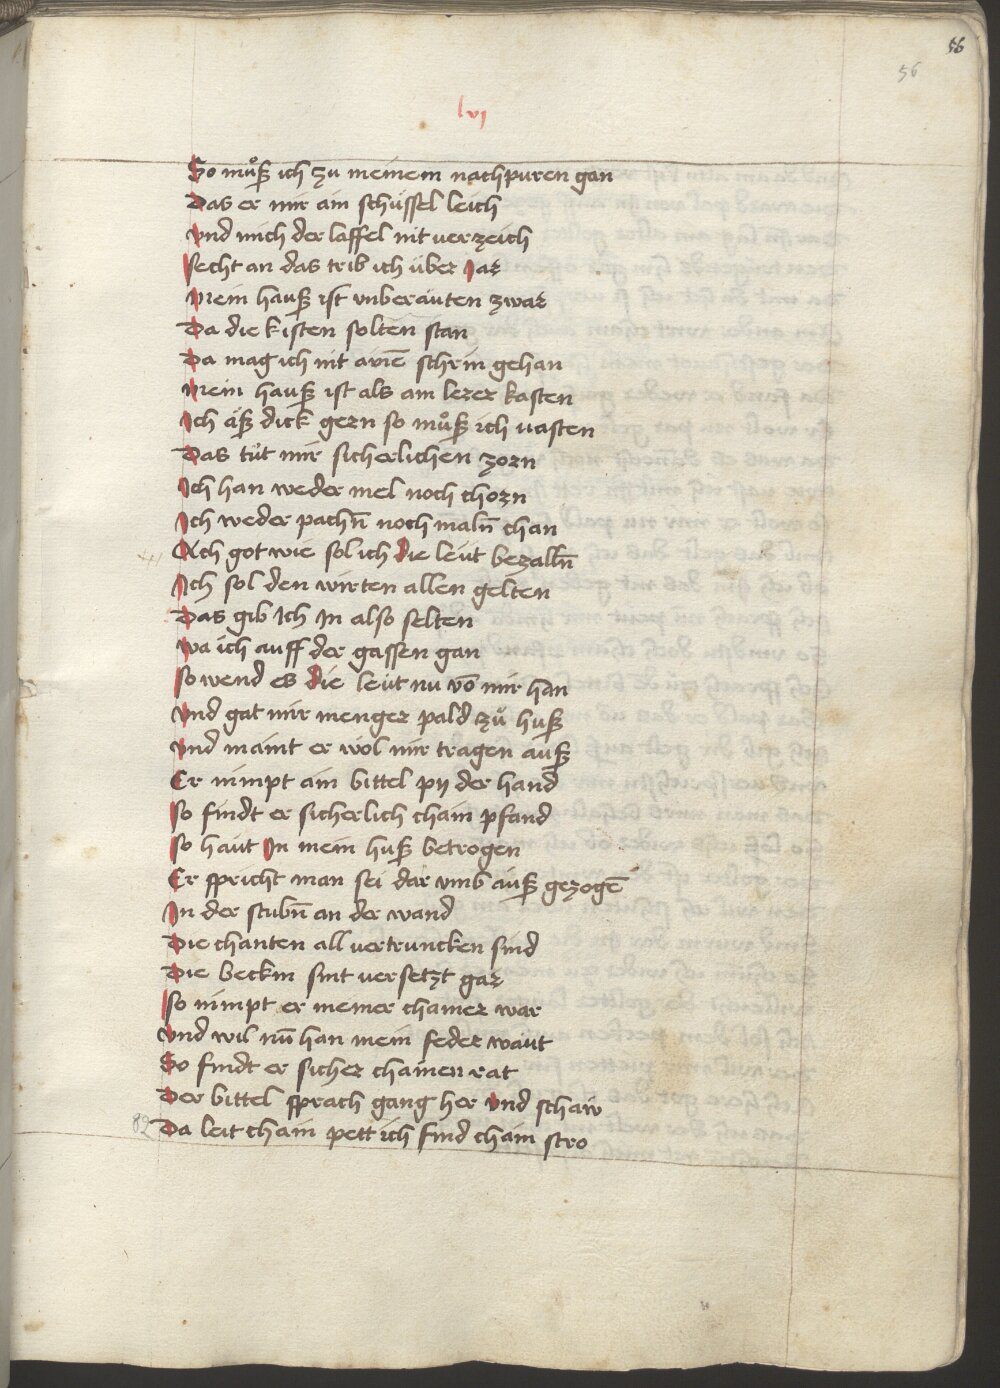 56
56
lvj
So muͦß ich zu meinem nachpuren gan
Das er mir ain schüssel leich
Vnd mich der laffel nit verzeich
Secht an das trib ich über Jar
Mein hauß ist vnberäuten zwar
Da die kisten solten stan
Da mag ich nit schrin gehan
Mein hauß ist als am lerer kasten
Ich äß dick gern so muͦß ich vasten
Das tuͦt mir sicherlichen zorn
Ich han weder mel noch chorn
Ich weder pachn̄ noch maln̄ chan
Ach got wie sol ich die leüt bezalln̄
Ich sol den wirten allen gelten
Das gib Ich In also selten
Wa ich auff der gassen gan
So wend es die leüt nu vō mir han
Vnd gat mir menger pald zuͦ huß
Vnd maint er wöl mir tragen auß
Er nimpt ain bittel pij der hand
So findt er sicherlich chain pfand
So haüt In mein huß betrogen
Er spricht man sei dar vmb auß gezogē
In der stubn̄ an der wand
Die chanten all vertruncken sind
Die beckin sint versetzt gar
So nimpt er meiner chamer war
Vnd wil nū han mein feder waut
So findt er sicher chainen rat
Der bittel sprach gang her vnd schaw
82 Da leit chain pett ich find chain stro